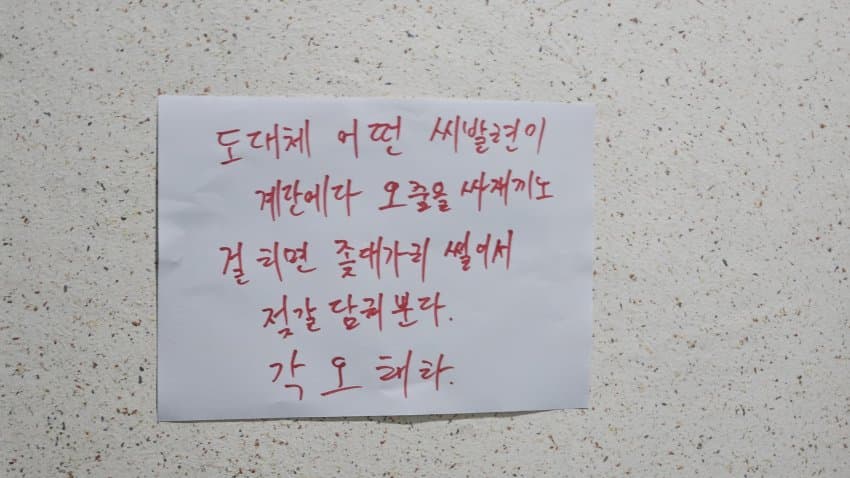 도대체 어떤 씨발련이
계란에다 오줌을 싸재끼노
걸리면 좆대가리 썰어서
젖갈 담궈분다.
각오해라.